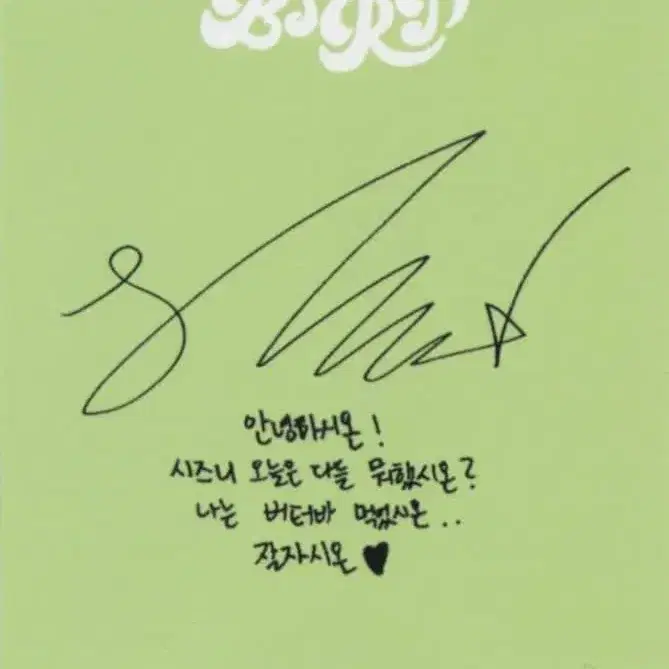 안녕하시온!
시즈니 오늘은 다들 뭐했시온?
나는 버터바 먹었시온..
잘자시온♥